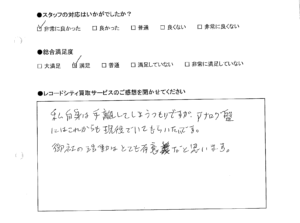 ●スタッフの対応はいかがでしたか？
☑非常に良かった □良かった □普通 □良くない □非常に良くない
●総合満足度
□大満足 ☑満足 □普通 □満足していない □非常に満足していない
●レコードシティ買取サービスのご感想を聞かせてください
私自身は手離してしまうつもりですが、アナログ盤
にはこれからも現役でいてもらいたいです。
御社の活動はとても有意義だと思います。